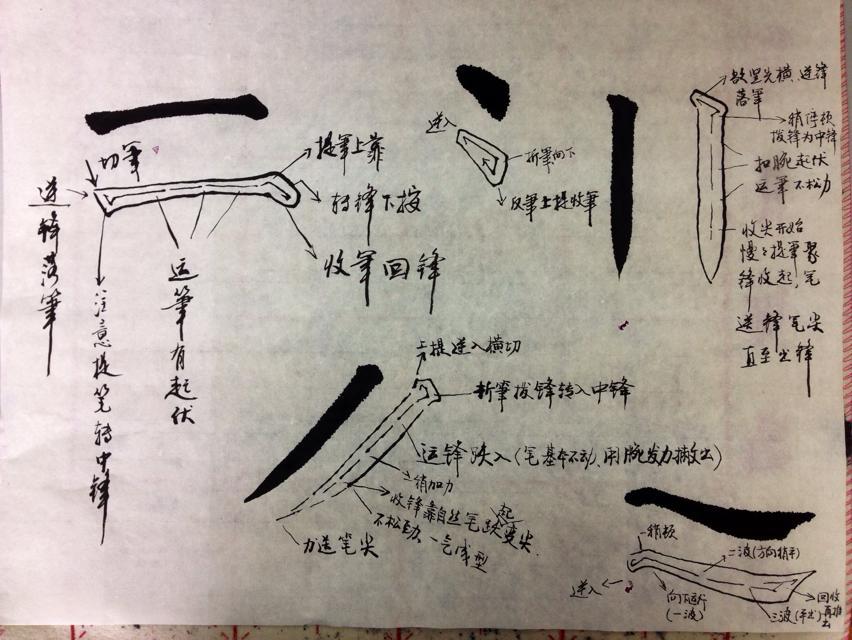 切筆
逆鋒落筆
注意提笔转中锋
运筆有起伏
提筆上靠
转锋下按
收筆回锋
逆入
折筆向下
反筆上提收筆
欲竖先横 逆锋
落筆
稍停顿
拨锋为中锋
扣腕起伏
运筆不松力
收尖开始
慢々提筆聚
锋收起,笔
送锋笔尖
直至出锋
上提逆入横切
折筆拨锋转入中锋
运锋跌入(笔基本不动,用腕发力撇出)
稍加力
收锋靠自然笔跌变尖
起
不松劲,一气成型
力送笔尖
稍顿
二波(方向稍平)
逆入
向下断
(一波)
三波(平出)
回收
再推
出